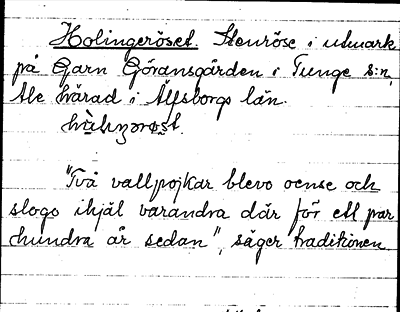 Holingeröset. Stenröse i utmark
på Garn Göransgården i Tunge s:n,
Ale härad i Älfsborgs län.

"Två vallpojkar blevo oense och
slogo ihjäl varandra där för ett par
hundra år sedan", säger traditionen